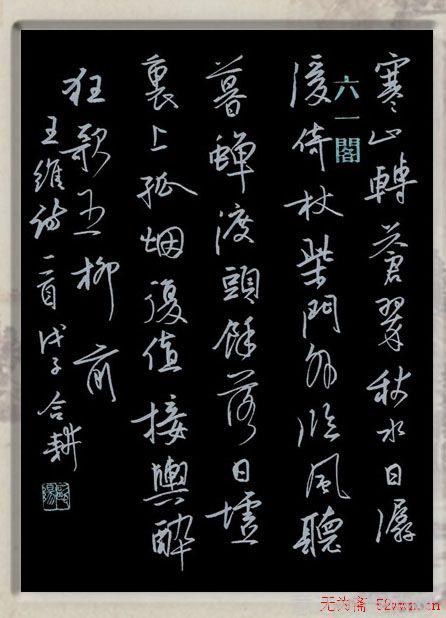 寒山轉蒼翠秋水日潺
湲倚杖柴門外臨風聽
暮蟬渡頭餘落日墟
裏上孤烟復值接輿醉
狂歌五柳前
王維詩一首戊子合耕
六一閣
无为斋 52wwz.cn